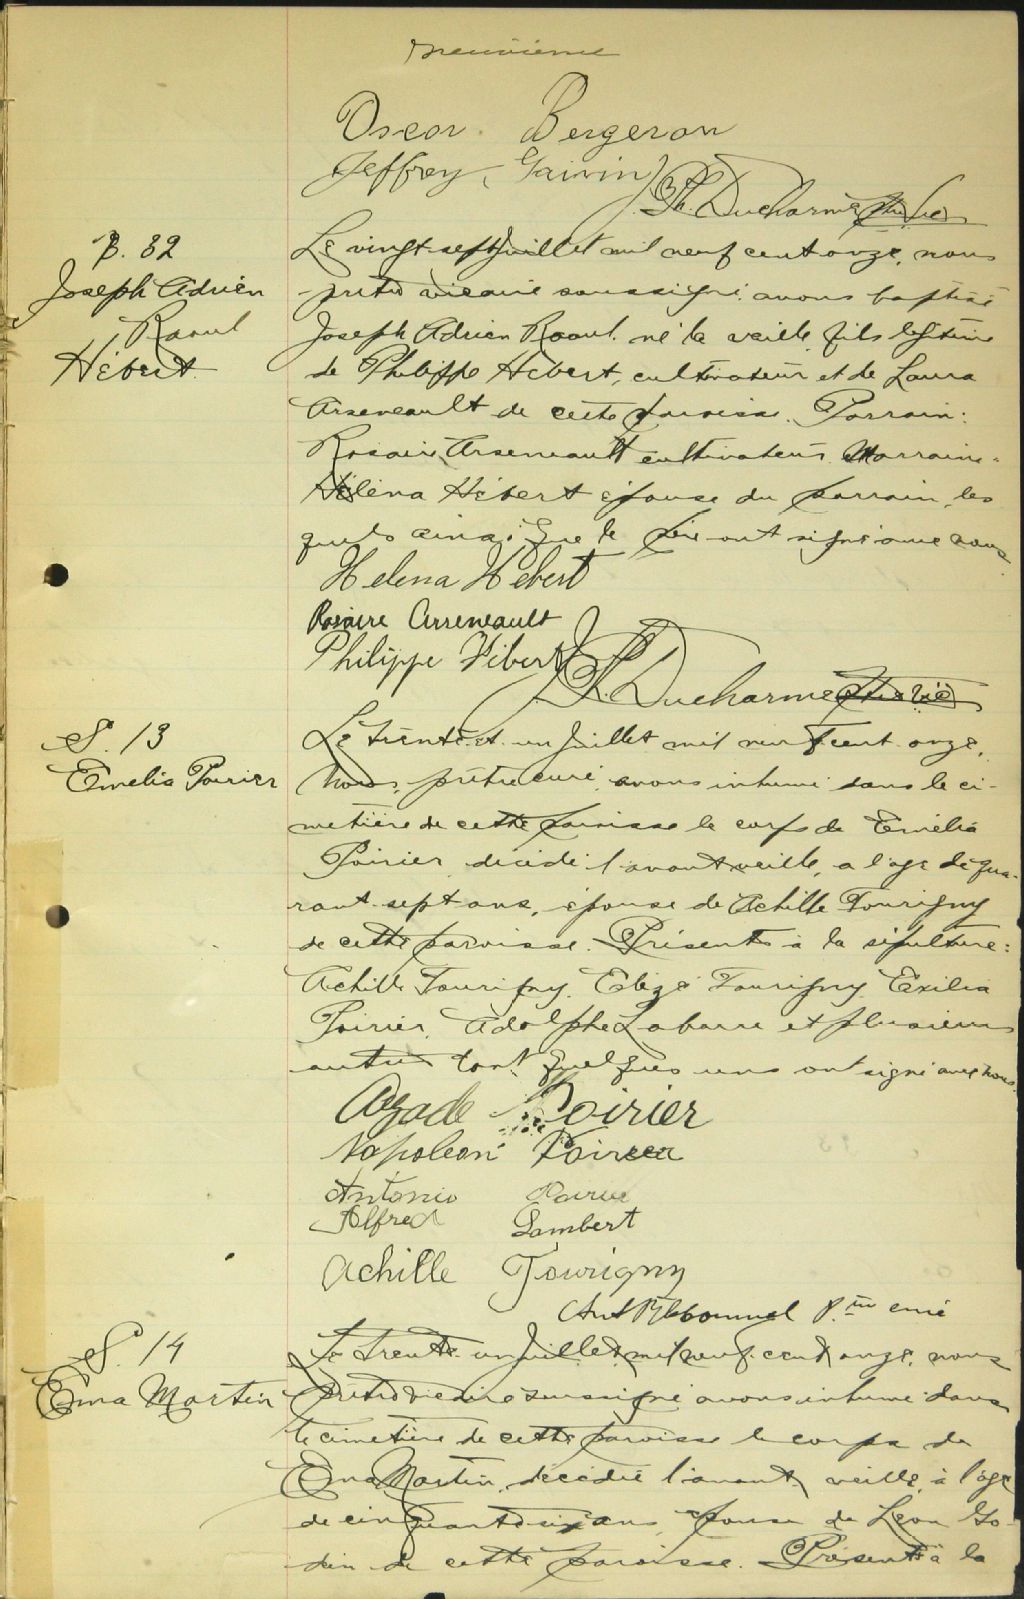 neuvième
Oscar Bergeron
Jeffrey Gaivin
Ph. Ducharme ptre vic
B. 32
Joseph Adrien
Raoul
Hébert
Le vingt-sept Juillet mil neuf cent onze, nous
prêtre vicaire soussigné avons baptisé
Joseph Adrien Raoul né la veille fils légitime
de Philippe Hébert, cultivateur et de Laura
Arseneault de cette paroisse. Parrain:
Rosaire Arseneault cultivateur Marraine
Héléna Hébert épouse du parrain, les
quels ainsi que le père ont signé avec nous
Helena Hebert
Rosaire Arseneault
Philippe Hébert
Ph. Ducharme ptre vic
S. 13
Emelia Poirier
Le trente et un Juillet mil neuf cent onze,
Nous, prêtre curé avons inhumé dans le ci-
metière de cette paroisse le corps de Emélia
Poirier, décédé l'avant veille, a l'age de qua-
rant-sept ans, épouse de Achille Tourigny
de cette paroisse. Présents à la sépulture:
Achille Tourigny, Elizé Tourigny Exilia
Poirier, Adolphe Labarre et plusieurs
autres dont quelques uns ont signé avec nous.
Azade Poirier
Napoleon Poirier
Antonio Poirier
Alfred Lambert
Achille Tourigny
Ptre curé
S. 14
Ema Martin
Le trente un Juillet mil neuf cent onze, nous
prêtre vicaire soussigné avons inhumé dans
le cimetière de cette paroisse le corps de
Ema Martin, décédée l'avant veille, à l'age
de cinquante six ans, épouse de Léon Go-
din de cette paroisse. Présents à la